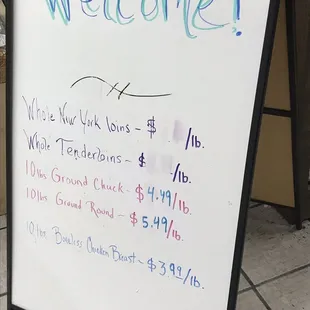 Welcome!
Whole New York loins - $ /lb.
Whole Tenderloins - $ /lb.
10lbs Ground Chuck - $4.49/lb.
10lbs Ground Round - $5.49/lb.
10lbs Boneless Chicken Breast - $3.99/lb.